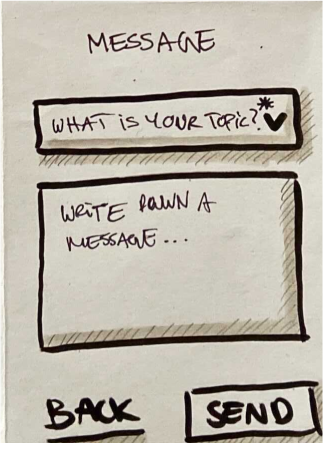 MESSAGE
WHAT IS YOUR TOPIC?*
WRITE DOWN A
MESSAGE...
BACK
SEND